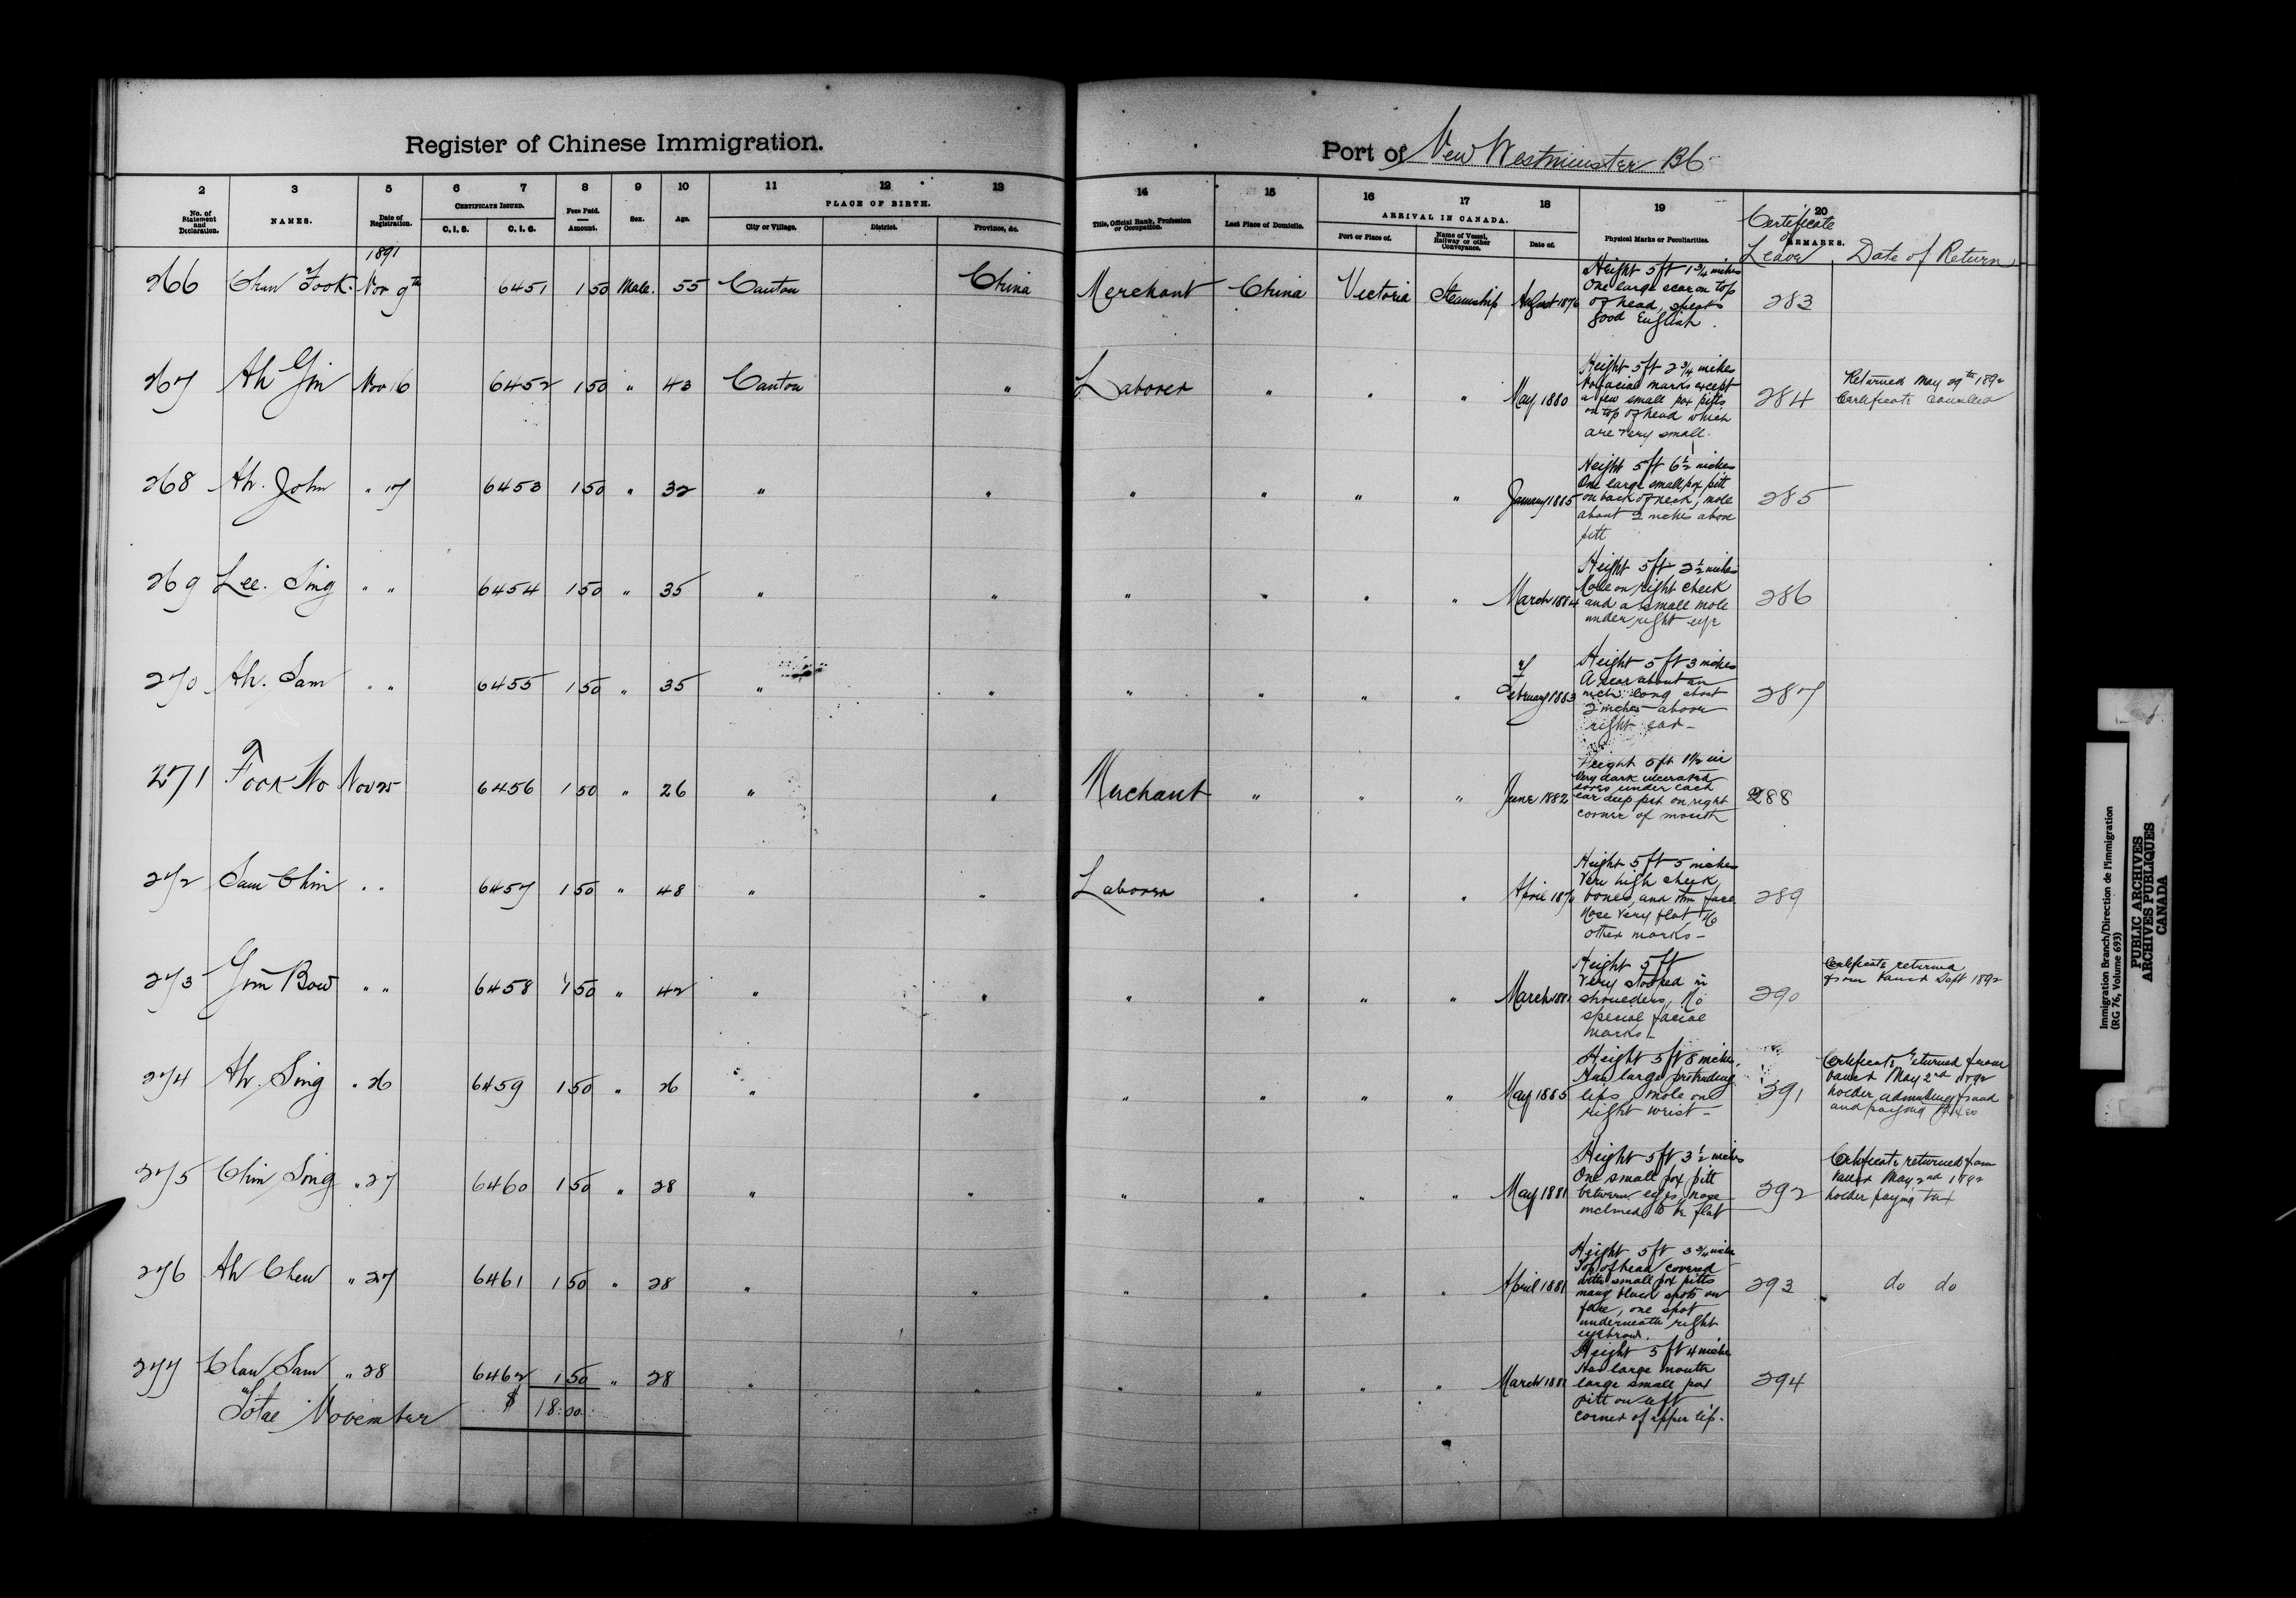 Register of Chinese Immigration.
Port of New Westminster BC
2 3 5 6 7 8 9 10 11 12 13 14 15 16 17 18 19 20
No. of Statement and Declaration. NAMES. Date of Registration. CERTIFICATE ISSUED. C. I. 5. C. I. 6. Fees Paid. Amount. Sex. Age. PLACE OF BIRTH. City or Village. District. Province, &c.
Title, Official Rank, Profession or Occupation. Last Place of Domicile. ARRIVAL IN CANADA. Port or Place of. Name of Vessel, Railway or other Conveyance. Date of. Physical Marks or Peculiarities. REMARKS. Certificate of Leave Date of Return
1891
266 Chin Fook Nov 9th 6451 1 50 Male. 55 Canton China Merchant China Victoria Steamship August 1876
Height 5 ft 1 3/4 inches
One large scar on top
of head, speaks
good English.
283
267 Ah Gin Nov 16 6452 1 50 " 43 Canton " Laborer " " " May 1880
Height 5 ft 2 3/4 inches
No facial marks except
a few small pox pitts
on top of head which
are very small.
284
Returned May 29th 1892
Certificate Cancelled
268 Ah. John " 17 6453 1 50 " 32 " " " " " " January 1885
Height 5 ft 6 1/2 inches
One large small pox pitt
on back of neck, mole
about 2 inches above
pitt
285
269 Lee. Sing " " 6454 1 50 " 35 " " " " " " March 1884
Height 5 ft 2 1/2 inches
Mole on right cheek
and a small mole
under right eye
286
270 Ah. Sam " " 6455 1 50 " 35 " " " " " " February 1883
Height 5 ft 3 inches
A scar about an
inch long about
2 inches above
right ear
287
271 Fook No Nov 25 6456 1 50 " 26 " " Merchant " " " June 1882
Height 5 ft 1 1/2 in
Very dark ulcerated
sores under each
ear deep pit on right
corner of mouth
288
272 Sam Chin " " 6457 1 50 " 48 " " Laborer " " " April
Height 5 ft 5 inches
Very high cheek
bones, and thin face
Nose very flat No
other marks
289
273 Gim Bow " " 6458 1 50 " 42 " " " " " " March 1881
Height 5 ft
Very stooped in
shoulders, No
special facial
marks
290
Certificate returned
from Sept 1892
274 Ah. Sing " 26 6459 1 50 " 26 " " " " " " May 1885
Height 5 ft 8 inches,
Has large protruding
lips, mole on
right wrist
291
Certificate returned from
May 2nd 1892
holder admitting fraud
and paying
275 Chin Sing " 27 6460 1 50 " 28 " " " " " " May 1881
Height 5 ft 3 1/2 inches
One small pox pitt
between eyes, nose
inclined to be flat
292
Certificate returned from
May 2nd 1892
holder paying tax
276 Ah Chew " 27 6461 1 50 " 28 " " " " " " April 1881
Height 5 ft 3 3/4 inches
Top of head covered
with small pox pitts
many black spots on
face, one spot
underneath right
eyebrow.
293 " do do
277 Chan Sam " 28 6462 1 50 " 28 " " " " " " March 1881
Height 5 ft 4 inches
Has large mouth
large small pox
pitt on left
corner of upper lip.
294
Total November $ 18.00
Immigration Branch/Direction de l'immigration
(RG 76, Volume 693)
PUBLIC ARCHIVES
ARCHIVES PUBLIQUES
CANADA